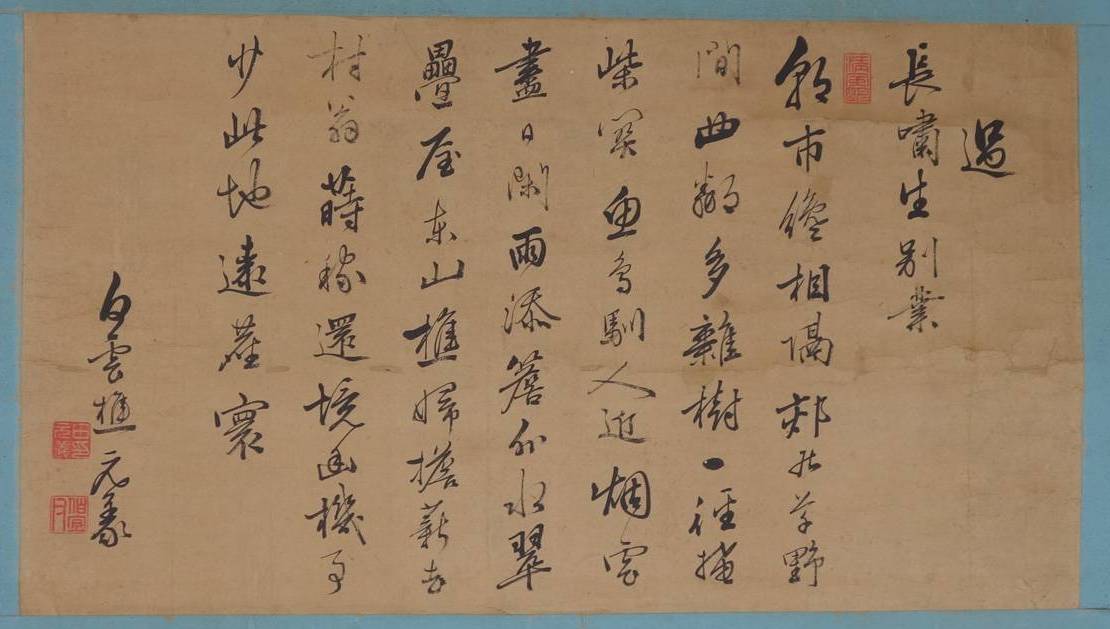 過
長嘯生別業
朝市纔相隔邨居草野
間曲鄰多雜樹一徑掩
柴関魚鳥馴人逝烟雲
盡日閑雨添簷外水翠
疊屋東山樵婦擔薪去
村翁蒔秧還境幽機事
少此地遠塵寰
白雲樵元象